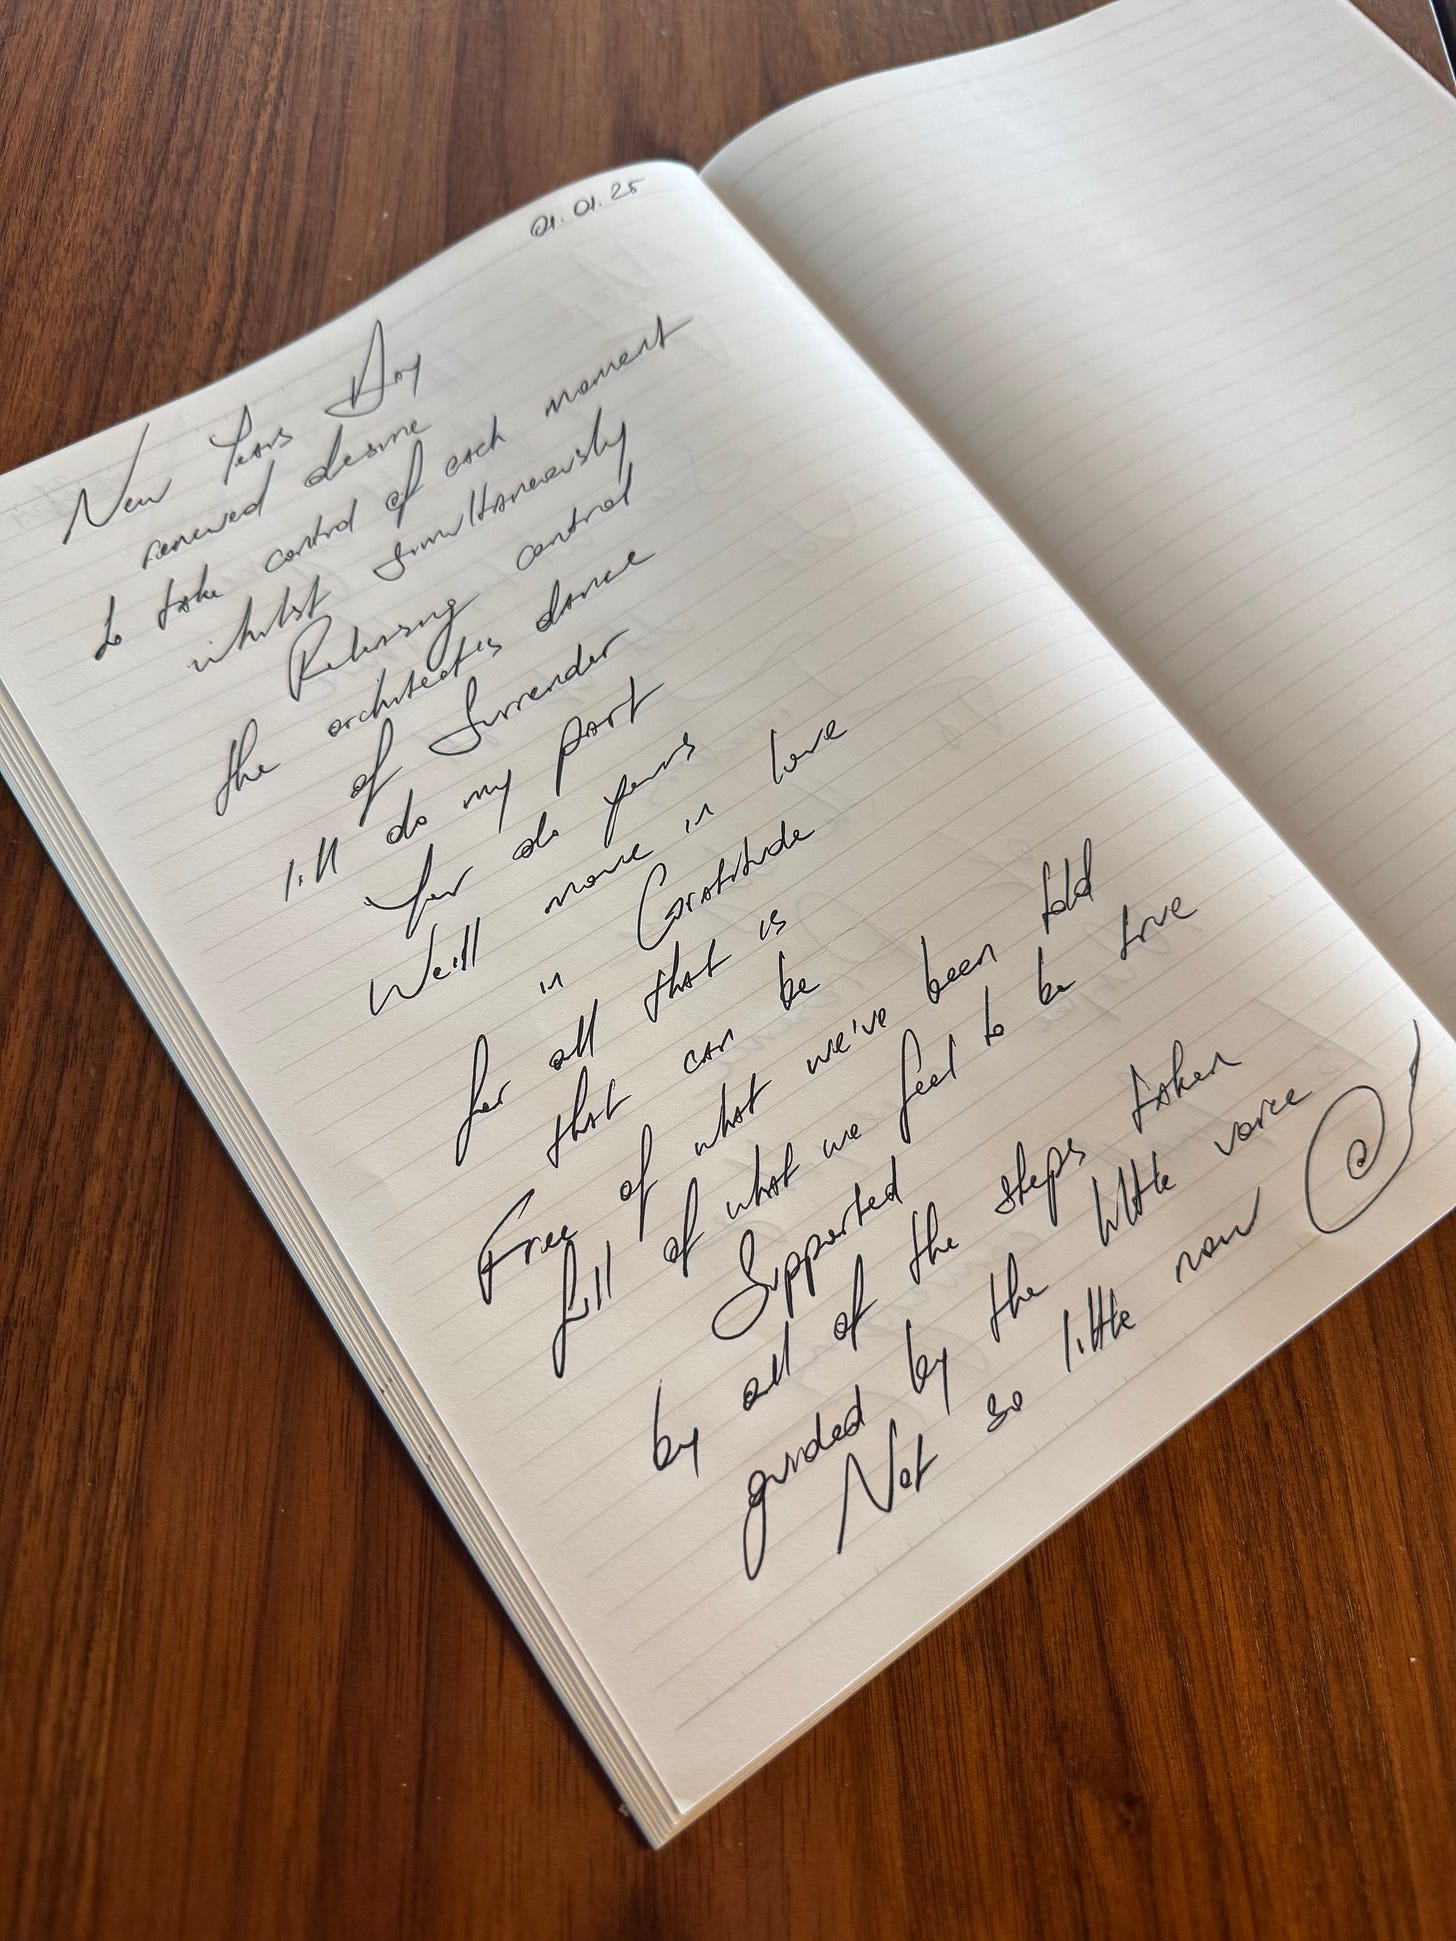 01.01.25
New Years Day
renewed desire
to take control of each moment
whilst simultaneously
Releasing control
the architect's dance
of Surrender
I'll do my part
You do yours
We'll move in love
in Gratitude
for all that is
that can be
Free of what we've been told
full of what we feel to be true
Supported
by all of the steps taken
guided by the little voice
Not so little now